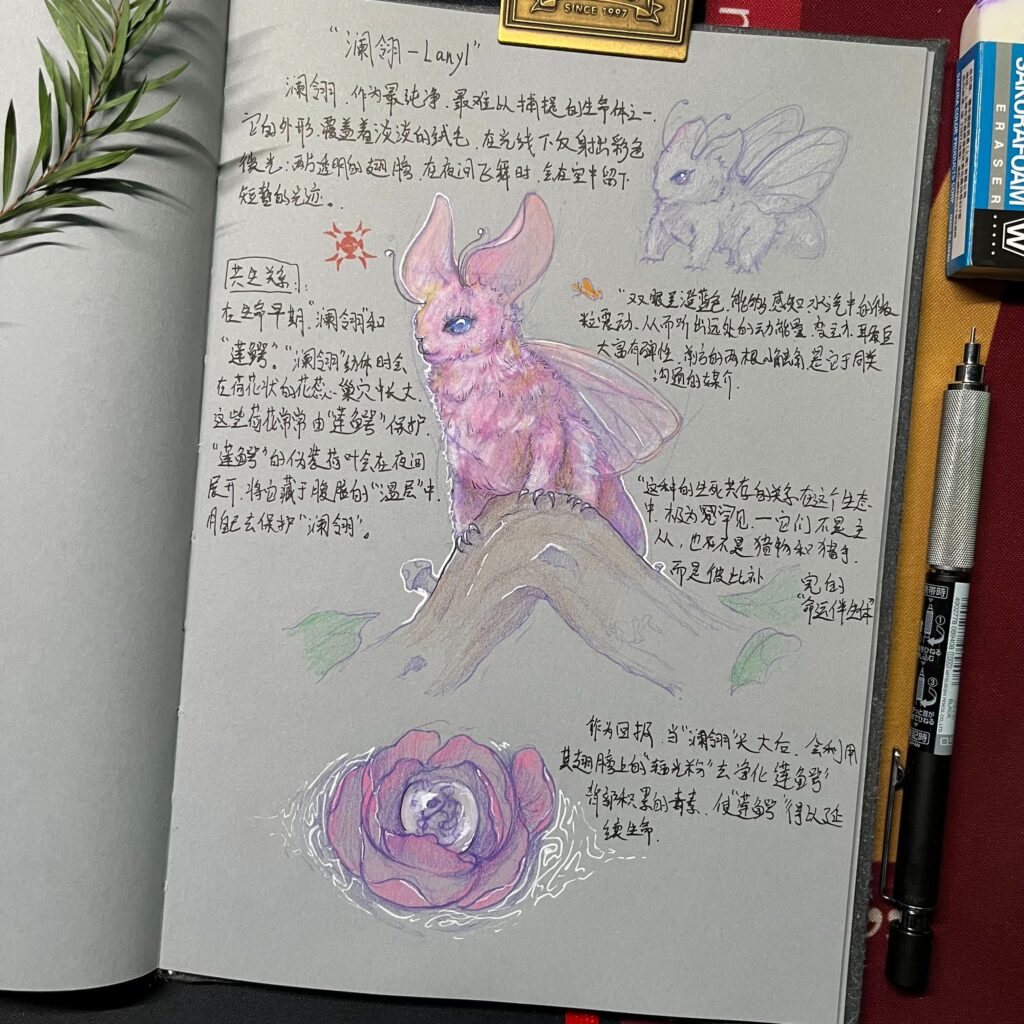 SINCE 1997
“澜翎-Lanyl”
澜翎,作为最纯净、最难以捕捉的生命体之一,
它的外形,覆盖着淡淡的绒毛,在光线下反射出彩色
微光;两片透明的翅膀,在夜间飞舞时,会在空中留下
短暂的光迹。
共生关系:
在生命早期,“澜翎”和
“莲鳄”。“澜翎”幼体时会
在荷花状的花蕊心巢穴中长大,
这些荷花常常由“莲鳄”保护,
“莲鳄”的伪装荷叶会在夜间
展开,将自藏于腹脏的“温层”中,
用自己去保护“澜翎”。
“双眼呈澄蓝色,能够感知水汽中的微
粒震动,从而听出远处的动能量变动,耳朵巨
大富有弹性,前方的两根小触角是它于同类
沟通的媒介.
“这种的生死共存的关系在这个生态
中,极为罕见,一它们不是主
从,也不是猎物和猎手,
而是彼此补
完的
“命运伴生体”
作为回报,当“澜翎”长大后,会利用
其翅膀上的“辐光粉”去净化“莲鳄”
背部积累的毒素,使“莲鳄”得以延
续生命.
SAKURA
FOAM
ERASER
SAKURA COLOR PRODUCTS
W